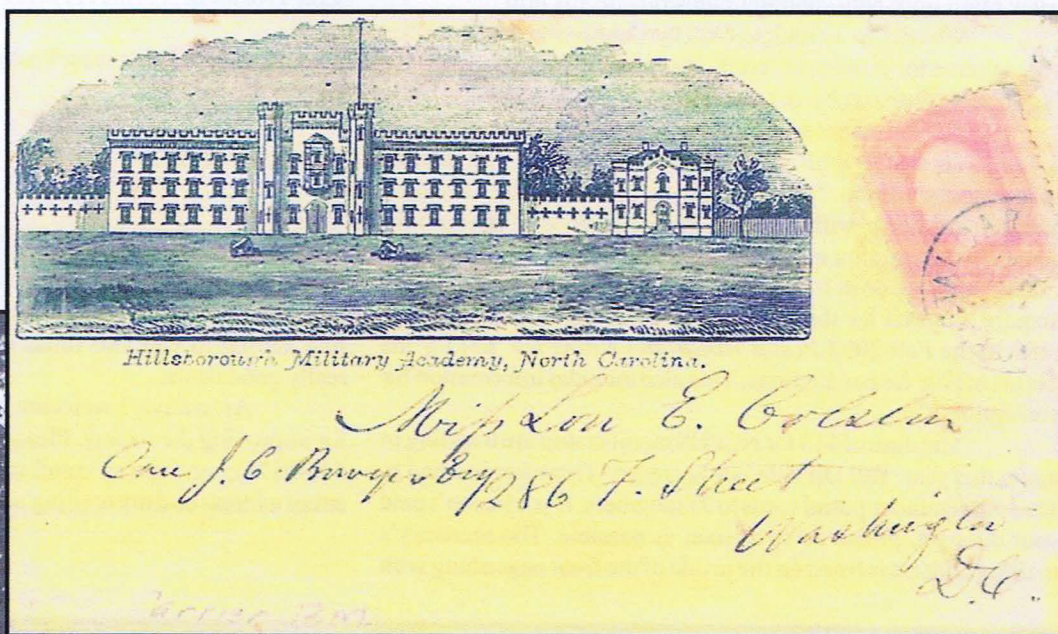 Hillsborough Military Academy, North Carolina.
Miss Lou E. Colston
Care J. C. Esq
286 F. Street
Washington
D.C.